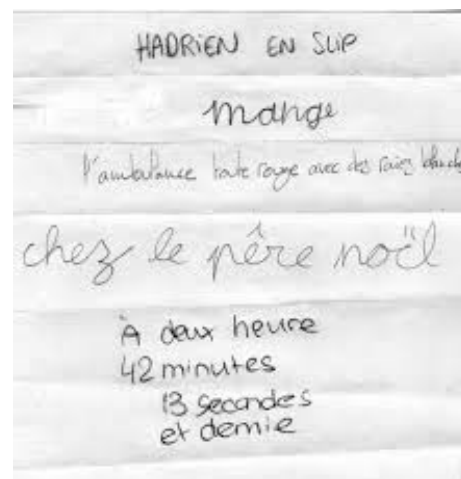 HADRiEN EN SLiP
mange
l'ambulance toute rouge avec des raies blanches
chez le pêre noël
À deux heure
42 minutes
13 secondes
et demie